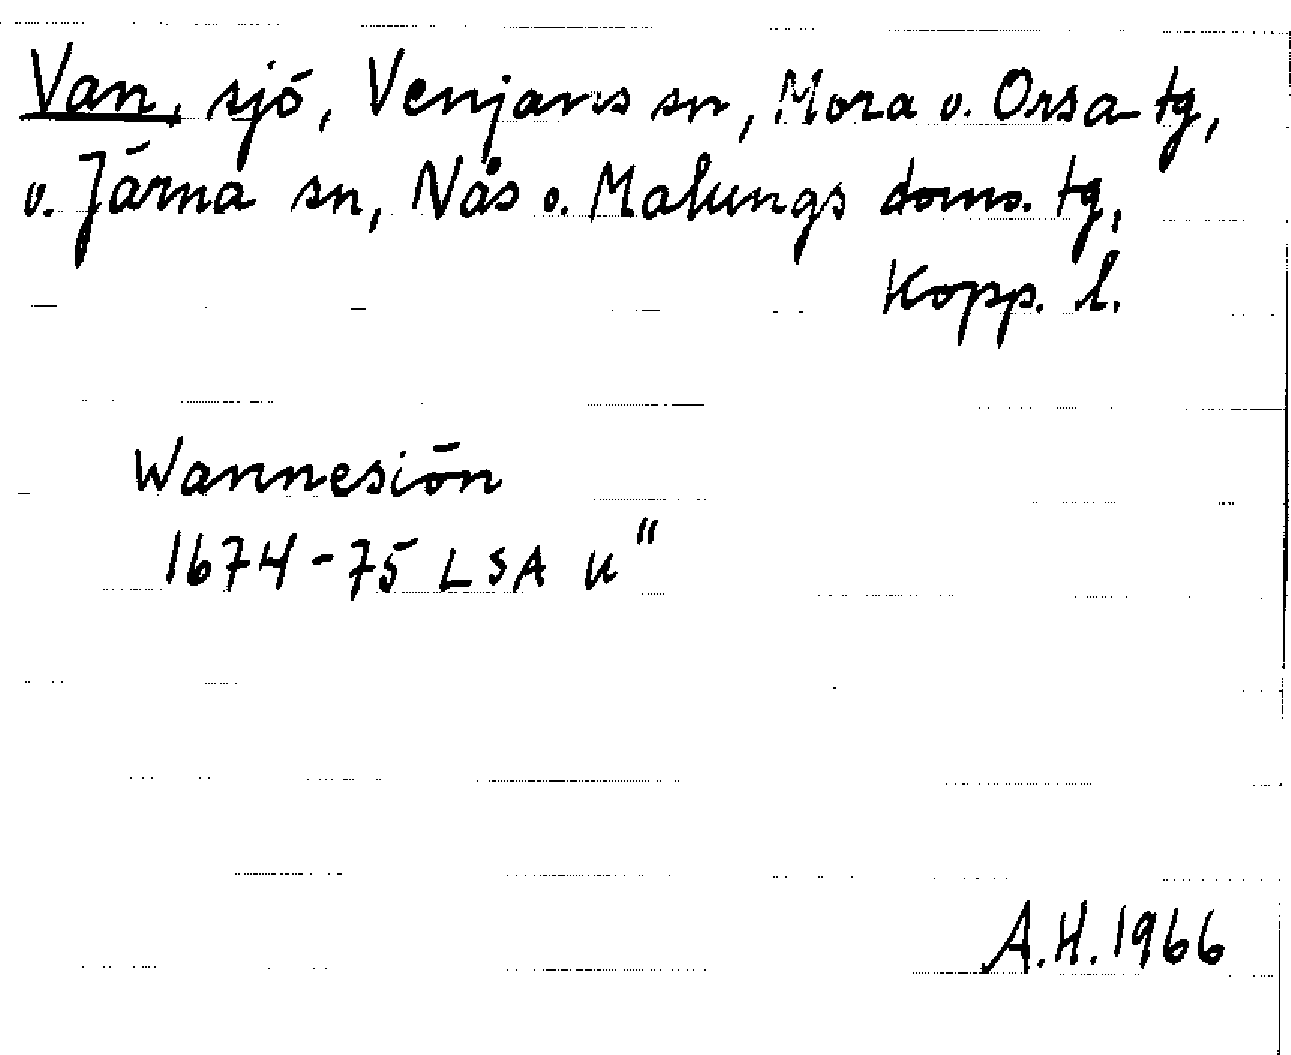 Van, sjö, Venjans sn, Mora o. Orsa tg,
o. Järna sn, Nås o. Malungs doms. tg,
Kopp. l.
Wannesiön
1674-75 LSA U"
A.H. 1966